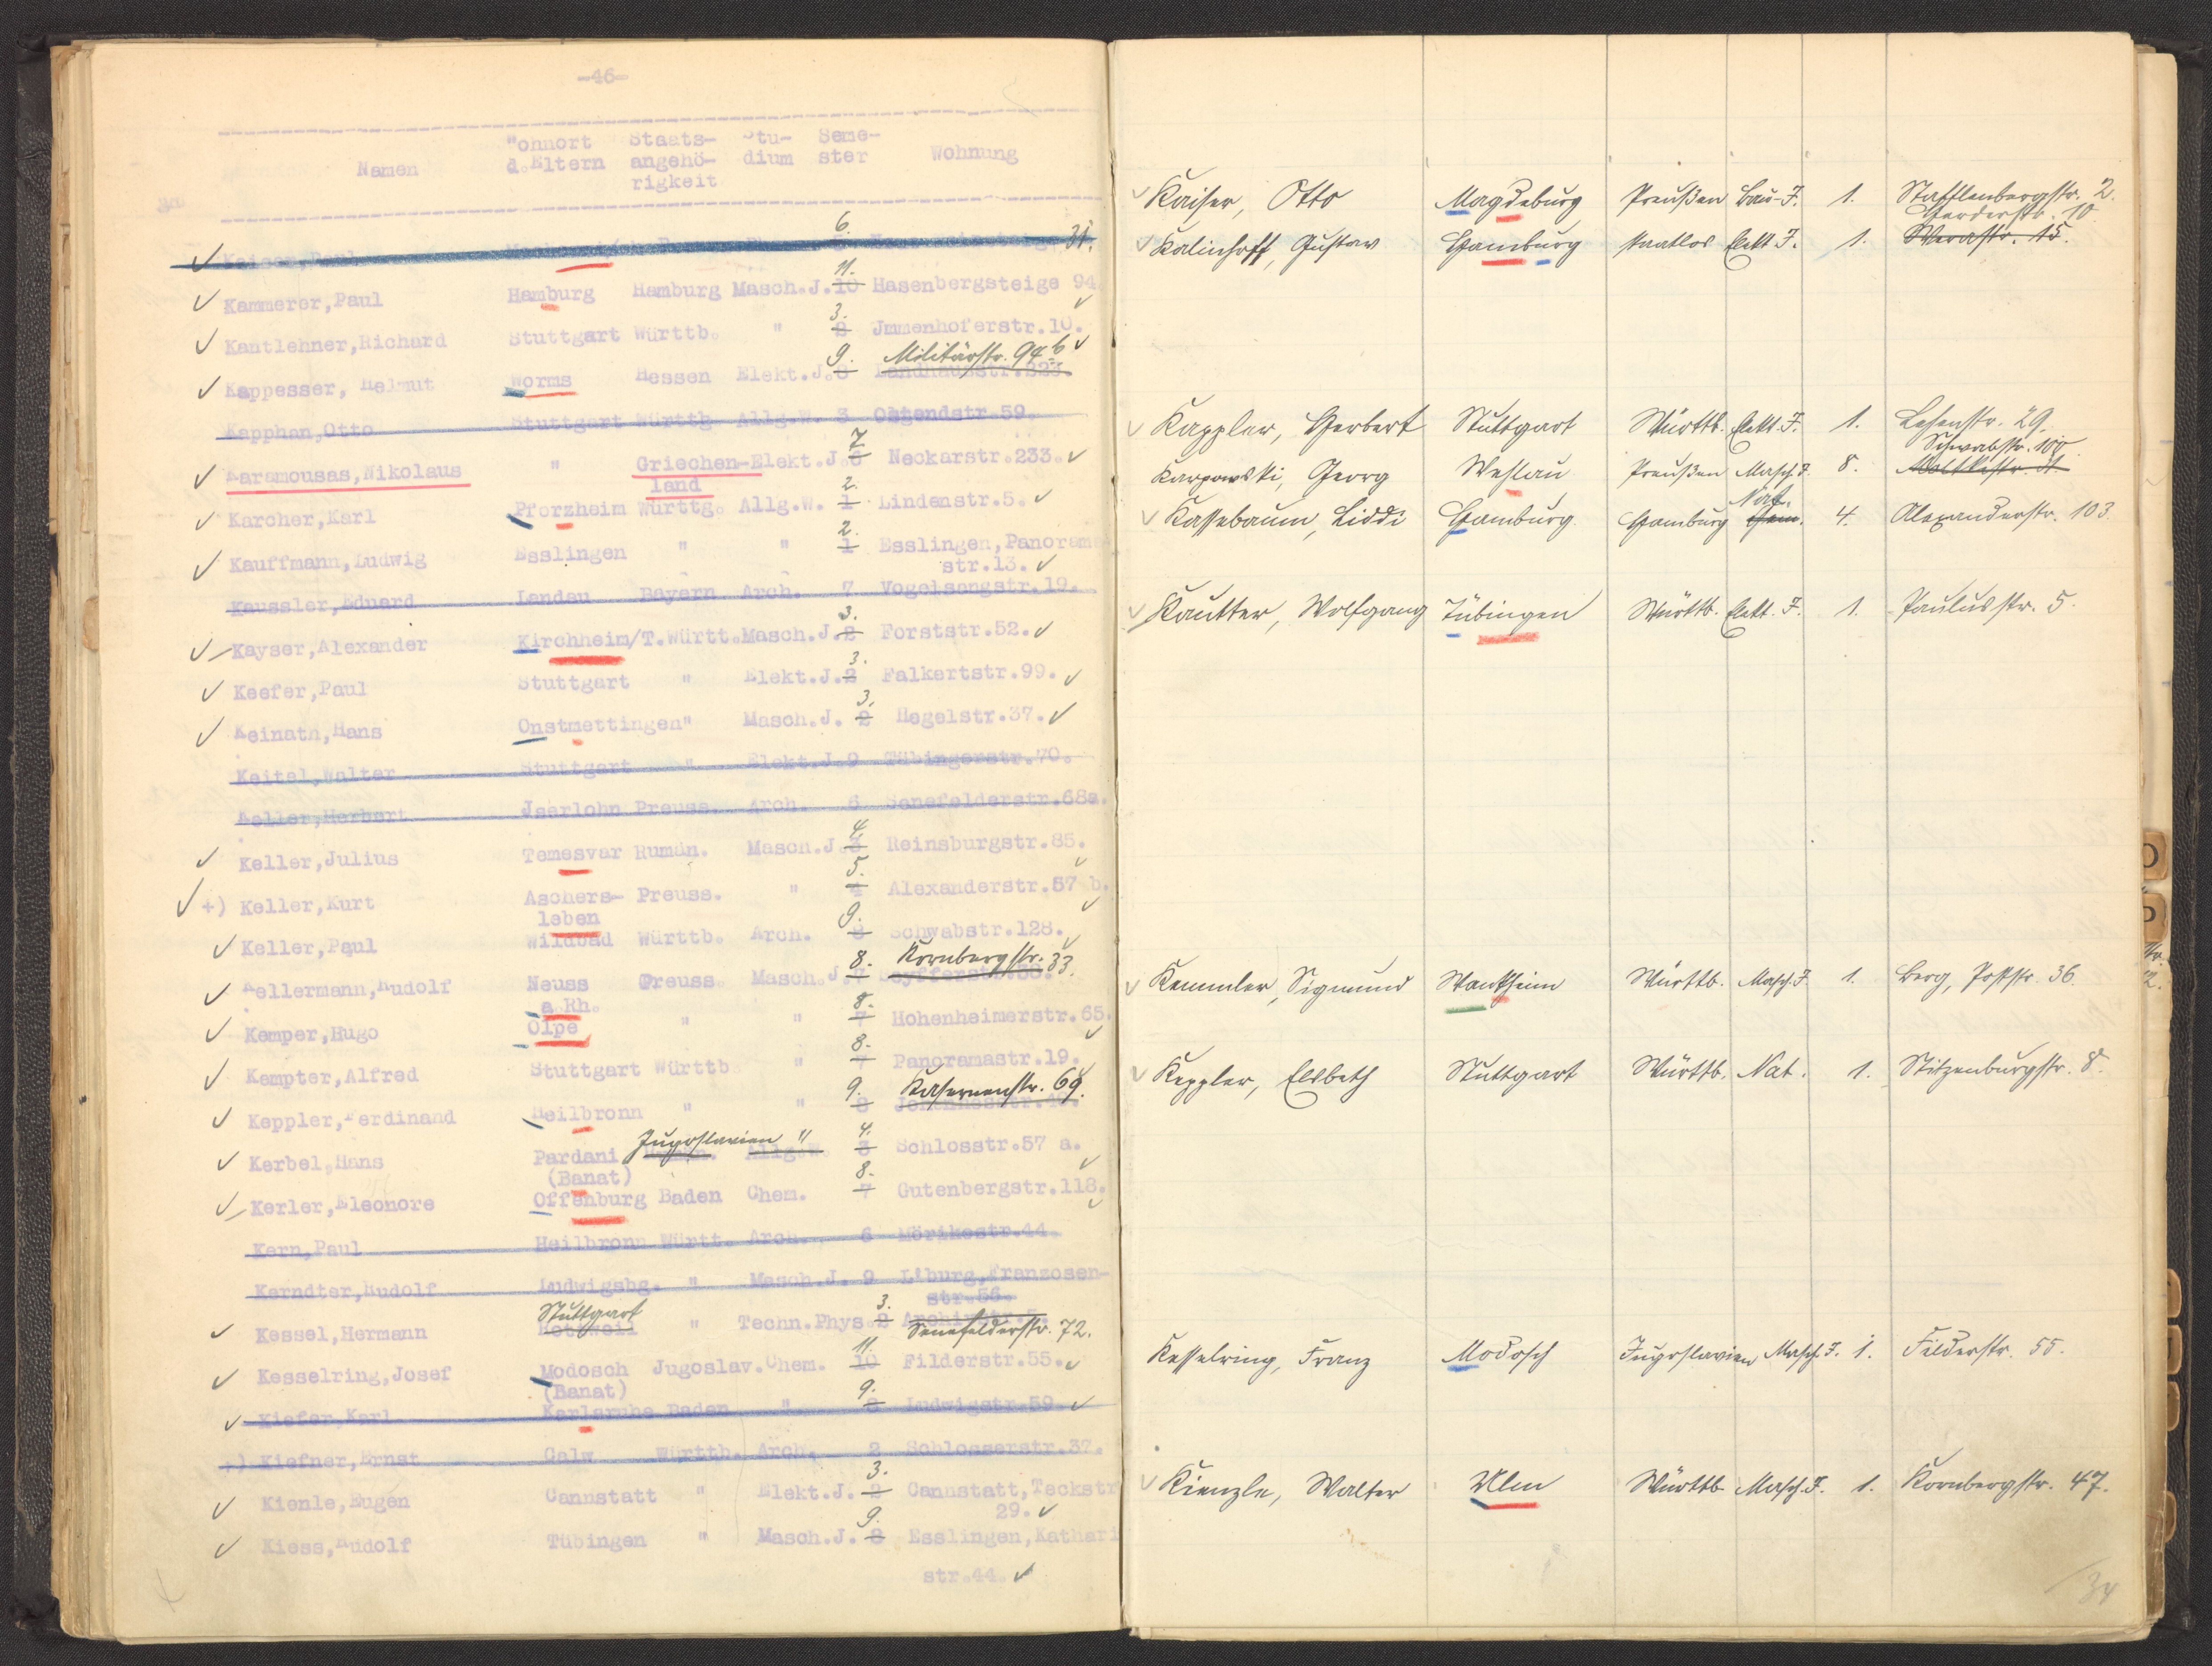 -46-
Namen Wohnort d.Eltern Staatsangehörigkeit Studium Semester Wohnung
6. 31.
11.
Kammerer,Paul Hamburg Hamburg Masch.J. 10 Hasenbergsteige 94
3.
Kantlehner,Richard Stuttgart Württb. " 2 Jmmenhoferstr.10.
9. Militärstr. 94 b
Kappesser, Helmut Worms Hessen Elekt.J. 8 Landhausstr.223.
Kapphan,Otto Stuttgart Württb. Allg.W. 3 Ostendstr.59.
7
Karamousas,Nikolaus " Griechen- Elekt.J. 6 Neckarstr.233.
land
2.
Karcher,Karl Pforzheim Württg. Allg.W. 1 Lindenstr.5.
2.
Kauffmann,Ludwig Esslingen " " 1 Esslingen,Panorama
str.13.
Kaussler,Eduard Landau Bayern Arch. 7 Vogelsangstr.19.
3.
Kayser,Alexander Kirchheim/T.Württ.Masch.J. 2 Forststr.52.
3.
Keefer,Paul Stuttgart " Elekt.J. 2 Falkertstr.99.
3.
Keinath,Hans Onstmettingen" Masch.J. 2 Hegelstr.37.
Keitel,Walter Stuttgart " Elekt.J. 9 Tübingerstr.70.
Keller,Herbert Jserlohn Preuss. Arch. 6 Senefelderstr.68a.
4.
Keller,Julius Temesvar Rumän. Masch.J. 3 Reinsburgstr.85.
5.
+) Keller,Kurt Aschers- Preuss. " 4 Alexanderstr.57 b.
leben
9.
Keller,Paul Wildbad Württb. Arch. 8 Schwabstr.128.
8. Kornbergstr. 33.
Kellermann,Rudolf Neuss Preuss. Masch.J. 7
a.Rh.
8.
Kemper,Hugo Olpe " " 7 Hohenheimerstr.65.
8.
Kempter,Alfred Stuttgart Württb " 7 Panoramastr.19.
9. Kasernenstr. 69.
Keppler,Ferdinand Heilbronn " " 8
Jugoslavien " 4.
Kerbel,Hans Pardani Allg.W. 3 Schlosstr.57 a.
(Banat)
8.
Kerler,Eleonore Offenburg Baden Chem. 7 Gutenbergstr.118.
Kern,Paul Heilbronn Württ. Arch. 6 Mörikestr.44.
Kerndter,Rudolf Ludwigsbg. " Masch.J. 9 L'burg,Franzosen-
str.56.
Stuttgart 3.
Kessel,Hermann Rottweil " Techn.Phys. 2
Senefelderstr. 72.
11.
Kesselring,Josef Modosch Jugoslav.Chem. 10 Filderstr.55.
(Banat)
9.
Kiefer,Karl Karlsruhe Baden " 8 Ludwigstr.59.
+) Kiefner,Ernst Calw Württb. Arch. 2 Schlosserstr.37.
3.
Kienle,Eugen Cannstatt " Elekt.J. 2 Cannstatt,Teckstr
29.
9.
Kiess,Rudolf Tübingen " Masch.J. 8 Esslingen,Kathari
str.44.
Kaiser, Otto Magdeburg Preußen Bau-J. 1. Stafflenbergstr. 2.
Herderstr. 10.
Kalinhoff, Gustav Hamburg staatlos Elekt J. 1. Werastr. 15.
Kappler, Herbert Stuttgart Württb. Elekt. J. 1. Lehenstr. 29.
Schwabstr. 100
Karpowski, Georg Wehlau Preußen Masch. J. 8. Moltkestr. 31
Nat.
Kassebaum, Liddi Hamburg Hamburg Chem. 4. Alexanderstr. 103.
Kautter, Wolfgang Tübingen Württb. Elekt. J. 1. Paulusstr. 5.
Kemmler, Sigmund Wankheim Württb. Masch. J. 1. Berg, Poststr. 36.
Keppler, Elsbeth Stuttgart Württb. Nat. 1. Stitzenburgstr. 8.
Kesselring, Franz Modosch Jugoslavien Masch. J. 1. Filderstr. 55.
Kienzle, Walter Ulm Württb. Masch. J. 1. Kornbergstr. 47.
34
O
P